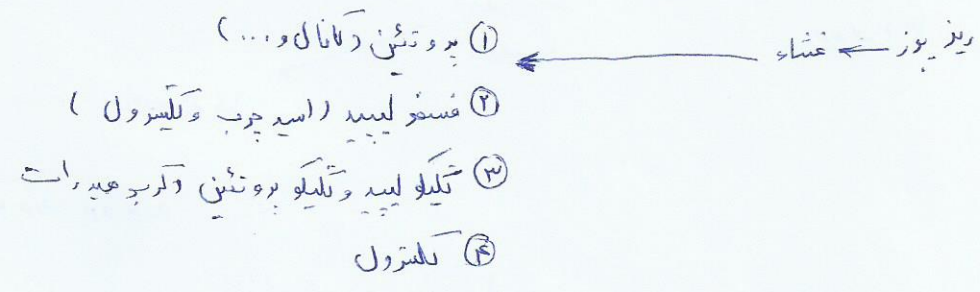 ریز بوز ← غشاء ← ① پروتئین (کانال و ...)
② فسفو لیپید (اسید چرب و گلیسرول)
③ گلیکو لیپید و گلیکو پروتئین (کربوهیدرات
④ کلسترول